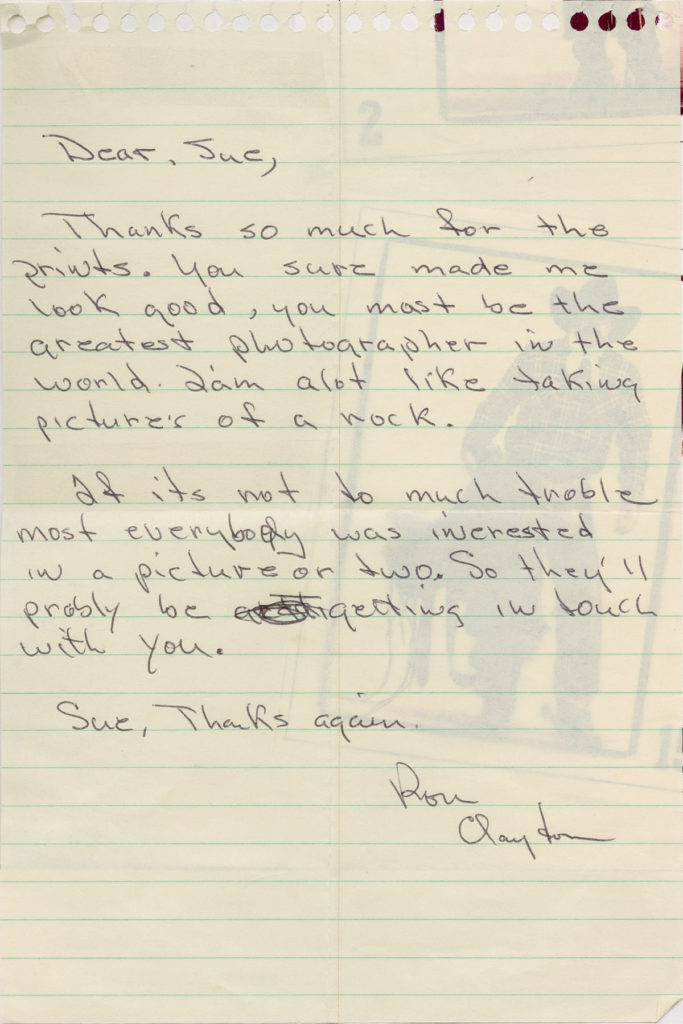 Dear, Sue,
Thanks so much for the
prints. You sure made me
look good, you most be the
greatest photographer in the
world. I'am alot like taking
picture's of a rock.
If its not to much troble
most everybody was inerested
in a picture or two. So they'll
probly be getting in touch
with you.
Sue, Thanks again.
Ron
Clayton
2